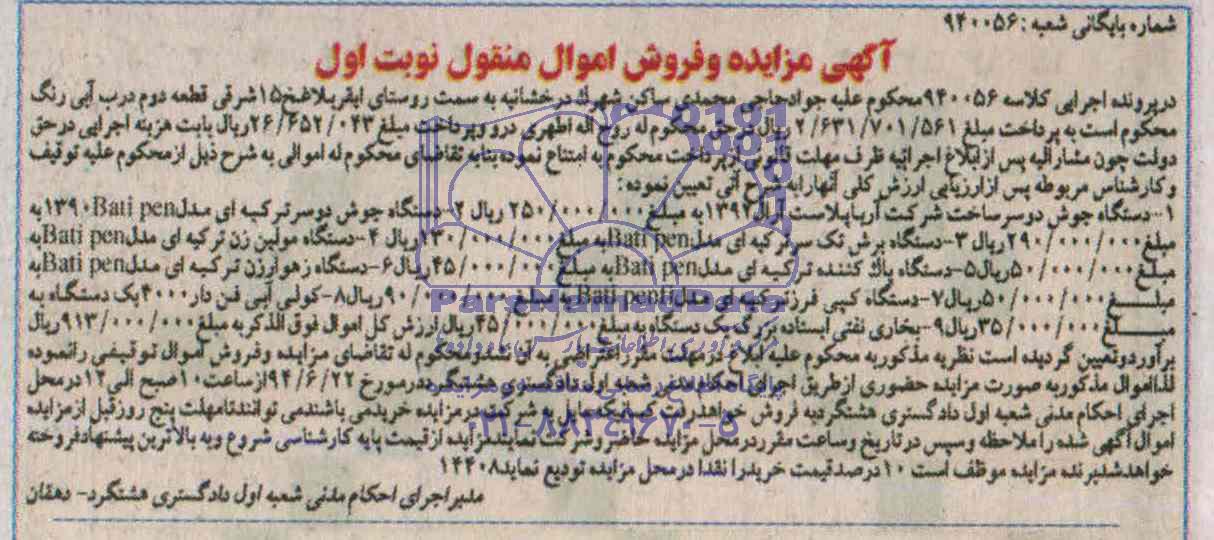 شماره بایگانی شعبه : ۹۴۰۰۵۶
آگهی مزایده وفروش اموال منقول نوبت اول
درپرونده اجرایی کلاسه ۹۴۰۰۵۶محکوم علیه جوادحاجی محمدی ساکن شهرك درخشانیه به سمت روستای ایقربلاغخ۱۵شرقی قطعه دوم درب آبی رنگ
محکوم است به پرداخت مبلغ ۲/۶۳۱/۷۰۱/۵۶۱ ریال درحق محکوم له روح اله اظهری درو وپرداخت مبلغ ۲۶/۶۵۲/۰۴۳ریال بابت هزینه اجرایی درحق
دولت چون مشارالیه پس ازابلاغ اجرائیه ظرف مهلت قانونی ازپرداخت محکوم به امتناع نموده بنابه تقاضای محکوم له اموالی به شرح ذیل ازمحکوم علیه توقیف
وکارشناس مربوطه پس ازارزیابی ارزش کلی آنهارابه شرح آتی تعیین نموده:
۱-دستگاه جوش دوسرساخت شرکت آریاپلاست آرال۱۳۹۲به مبلغ ۲۵۰/۰۰۰/۰۰۰ ریال ۲-دستگاه جوش دوسرترکیبه ای مدلBati pen۱۳۹۰به
مبلغ۲۹۰/۰۰۰/۰۰۰ریال ۳-دستگاه برش تک سرترکیه ای مدلBati penبه مبلغ۱۳۰/۰۰۰/۰۰۰ریال ۴-دستگاه مولین زن ترکیه ای مدلBati penبه
مبلغ۵۰/۰۰۰/۰۰۰ریال۵-دستگاه پاك کننده ترکیبه ای مدلBati penبه مبلغ۴۵/۰۰۰/۰۰۰ریال۶-دستگاه زهوارزن ترکیه ای مدلBati penبه
مبلغ۵۰/۰۰۰/۰۰۰ریال۷-دستگاه کپی فرزترکیه ای مدلBati penبه مبلغ ۹۰/۰۰۰/۰۰۰ریال۸-کولی آبی فن دار۴۰۰۰یک دستگاه به
مبلغ۳۵/۰۰۰/۰۰۰ریال۹-بخاری نفتی ایستاده بزرگ یک دستگاه به مبلغ۴۵/۰۰۰/۰۰۰ریال ارزش کل اموال فوق الذکربه مبلغ۹۱۳/۰۰۰/۰۰۰ریال
برآوردوتعیین گردیده است نظربه مذکوربه محکوم علیه ابلاغ درمهلت مقرر اعتراضی به آن نشدومحکوم له تقاضای مزایده وفروش اموال توقیفی رانموده
لذااموال مذکوربه صورت مزایده حضوری ازطریق اجرای احکام مدنی شعبه اول دادگستری هشتگرددرمورخ ۹۴/۶/۲۲ازساعت۱۰صبح الی۱۲درمحل
اجرای احکام مدنی شعبه اول دادگستری هشتگردبه فروش خواهدرفت کسانیکه مایل به شرکت درمزایده خریدمی باشندمی توانندتامهلت پنج روزقبل ازمزایده
اموال آگهی شده راملاحظه وسپس درتاریخ وساعت مقرردرمحل مزایده حاضروشرکت نمایندمزایده ازقیمت پایه کارشناسی شروع وبه بالاترین پیشنهادفروخته
خواهدشدبرنده مزایده موظف است ۱۰درصدقیمت خریدرا نقدا درمحل مزایده تودیع نماید۱۴۴۰۸
مدیراجرای احکام مدنی شعبه اول دادگستری هشتگرد- دهقان
ParsNamadData
۰۲۱-۸۸۳۴۹۶۷۰-۵